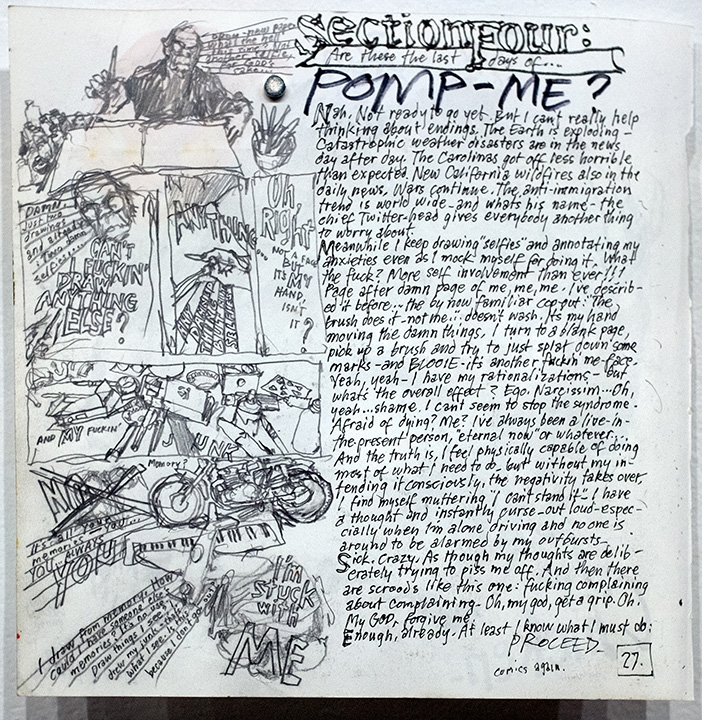 Section Four:
Are these the last days of...
POMP-ME?
Nah, Not ready to go yet. But I can't really help
thinking about endings. The Earth is exploding -
Catastrophic weather disasters are in the news
day after day. The Carolinas got off less horrible
than expected. New California wildfires also in the
daily news, Wars continue. The anti-immigration
trend is world wide - and whats his name - the
chief Twitter-head gives everybody another thing
to worry about.
Meanwhile I keep drawing "selfies" and annotating my
anxieties even as I mock myself for doing it. What
the fuck? More self involvement than ever!!!
Page after damn page of me, me, me. I've describ-
ed it before... the by now familiar cop out: "The
brush does it - not me.".. doesn't wash. Its my hand
moving the damn things, I turn to a blank page,
pick up a brush and try to just splat down some
marks - and BLOOIE - it's another fuckin' me-face.
Yeah, yeah - I have my rationalizations - but
whats the overall effect? Ego. Narcissim... Oh,
yeah... shame. I can't seem to stop the syndrome.
Afraid of dying? Me? I've always been a live-in-
the present person, "eternal now" or whatever...
And the truth is, I feel physically capable of doing
most of what I need to do but without my in-
tending it consciously, the negativity takes over.
I find myself muttering "I can't stand it" - I have
a thought and instantly curse - out loud - espec-
cially when I'm alone driving and no one is
around to be alarmed by my outbursts -
Sick. Crazy. As though my thoughts are delib-
erately trying to piss me off. And then there
are screeds like this one: fucking complaining
about complaining. Oh, my god, get a grip. Oh.
My GOD, forgive me.
Enough, already. At least I know what I must do:
PROCEED.
comics again.
27.
DAMN
Just two
drawings
and already
two
selfies
CAN'T
FUCKIN'
DRAW
ANYTHING
ELSE?
ANYTHING...
Oh,
Right
NOT A FACE
BUT
IT'S MY
HAND,
ISN'T
IT?
AND MY FUCKIN'
JUNK
Memory?
It's all you...
memories
YOU ALWAYS
YOU!
I'M
STUCK
WITH
ME
I draw from memory - How
could I have someone else's
memories?
Draw things no see
drew my junk - that's
what I see.
because I don't